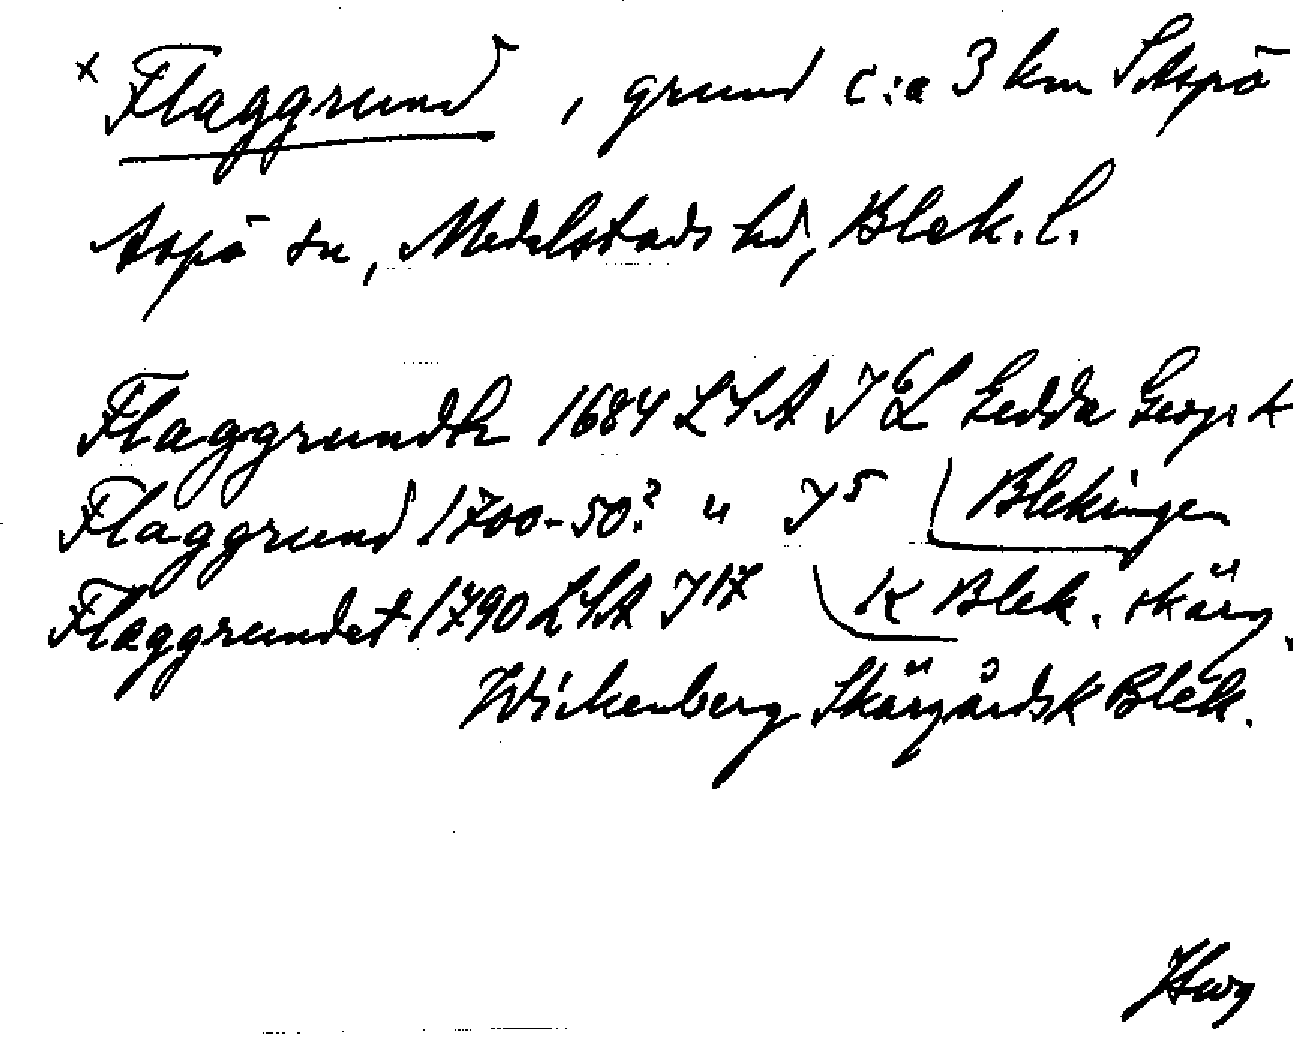 x Flaggrund, grund c:a 3 km S Aspö
Aspö sn, Medelstads hd, Blek. l.
Flaggrundh 1684 LSA Gedda Geogr K
Flaggrund 1700-50? " J5 Blekingen
Flaggrundet 1790 LSA J17 K Blek. skärg.
Wickenberg Skärgårdsk Blek.